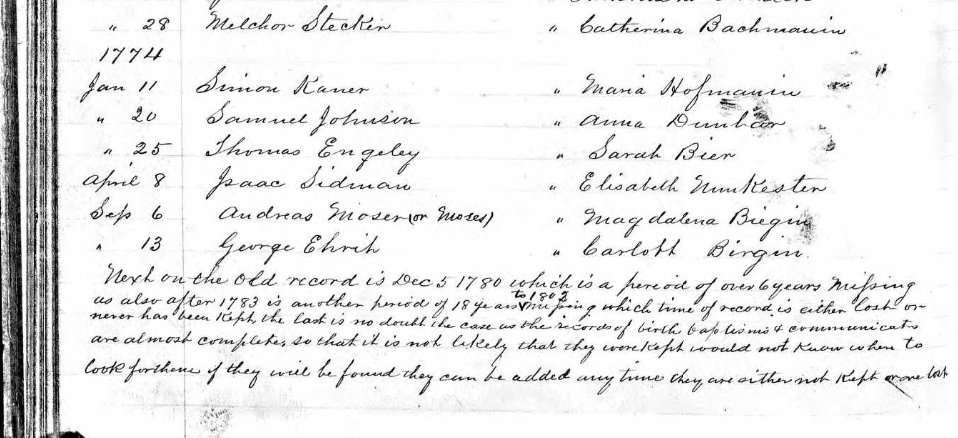 " 28 Melchor Stecker " Catherina Bachmanin
1774
Jan 11 Simon Kaner " Maria Hofmanin
" 20 Samuel Johnson " Anna Dunbar
" 25 Thomas Engeley " Sarah Bier
April 8 Isaac Sidman " Elisabeth Nunkester
Sep 6 Andreas Moser (or Moses) " Magdalena Biegin
" 13 George Ehrih " Carlott Birgin
Next on the Old record is Dec 5 1780 which is a period of over 6 years Missing
as also after 1783 is another period of 18 years to 1802 missing which time of record is either lost or
never has been Kept, the last is no doubt the case as the records of birth baptisms & communicats
are almost complete, so that it is not likely that they were Kept would not Know when to
look for them if they will be found they can be added any time they are either not Kept or are lost